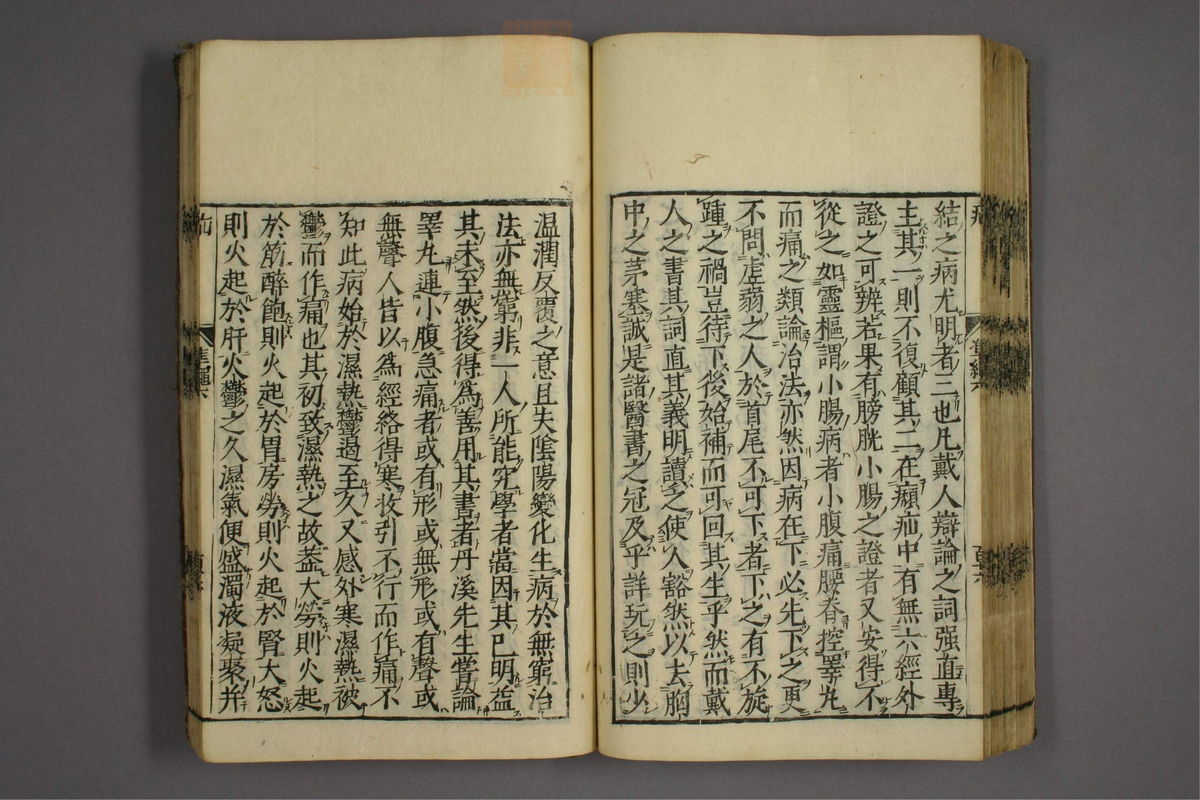 結之病尤明者三也凡戴人辯論之詞强直專
主其一則不復顧其二在㿗疝中有無六經外
證之可辨若果有膀胱小腸之證者又安得不
從之如靈樞謂小腸病者小腹痛腰脊控睪丸
而痛之類論治法亦然因病在下必先下之更
不問虛弱之人於首尾不可下者下之有不旋
踵之禍豈待下後始補而可回其生乎然而戴
人之書其詞直其義明讀之使人豁然以去胸
中之茅塞誠是諸醫書之冠及乎詳玩之則少
温潤反覆之意且失陰陽變化生病於無窮治
法亦無窮非一人所能究學者當因其已明益
其未至然後得爲善用其書者丹溪先生嘗論
睪丸連小腹急痛者或有形或無形或有聲或
無聲人皆以爲經絡得寒收引不行而作痛不
知此病始於濕熱鬱遏至久又感外寒濕熱被
鬱而作痛也其初致濕熱之故葢大勞則火起
於筋醉飽則火起於胃房勞則火起於腎大怒
則火起於肝火鬱之久濕氣便盛濁液凝聚并